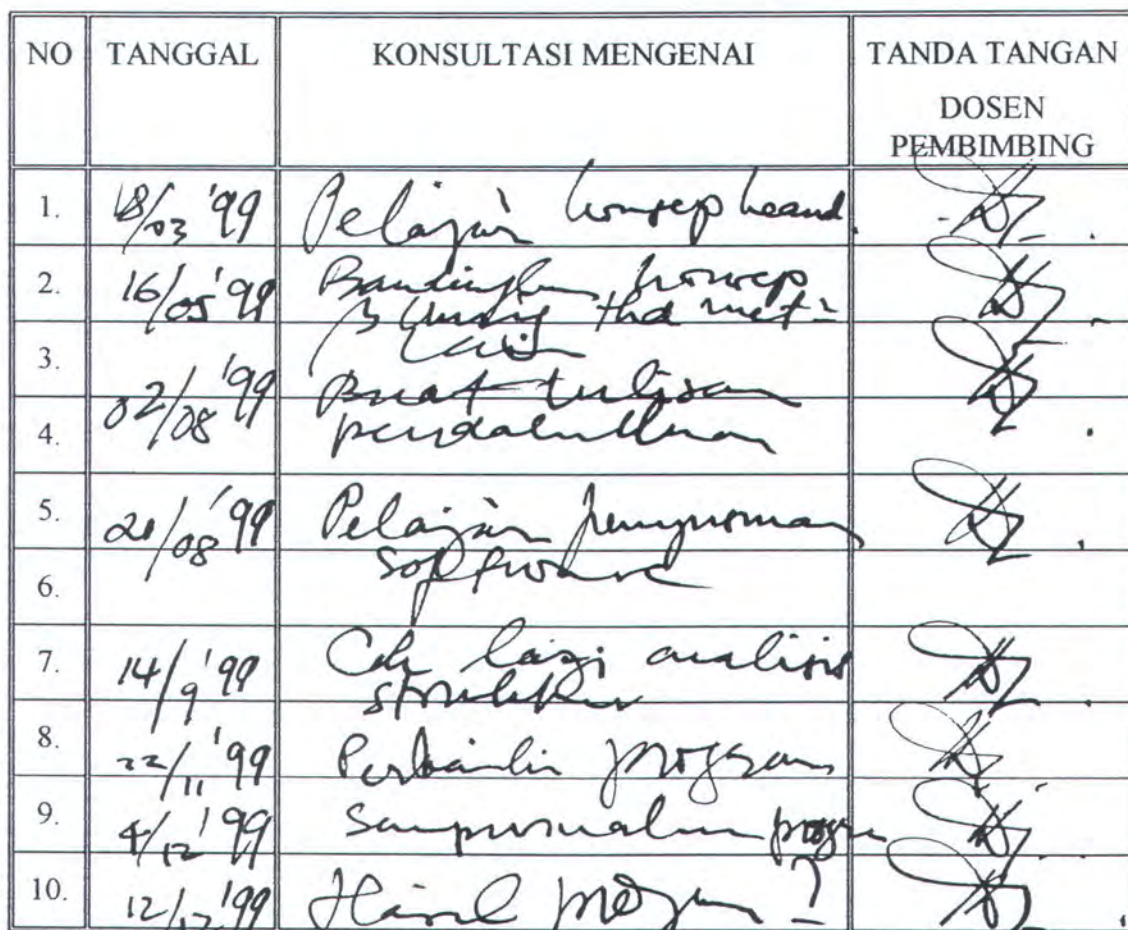 NO TANGGAL KONSULTASI MENGENAI TANDA TANGAN
DOSEN
PEMBIMBING
1. 18/03 '99 Pelajari konsep
2. 16/05 '99 Bandingkan konsep
thd met2
3. lain
02/08 '99 Buat tulisan
4. pendahuluan
5. 20/08 '99 Pelajari penyusunan
6. software
7. 14/9 '99 Cek lagi analisis
struktur
8. 22/11 '99 Perbaiki program
9. 4/12 '99 Sempurnakan progr
10. 12/12 '99 Hasil program ?